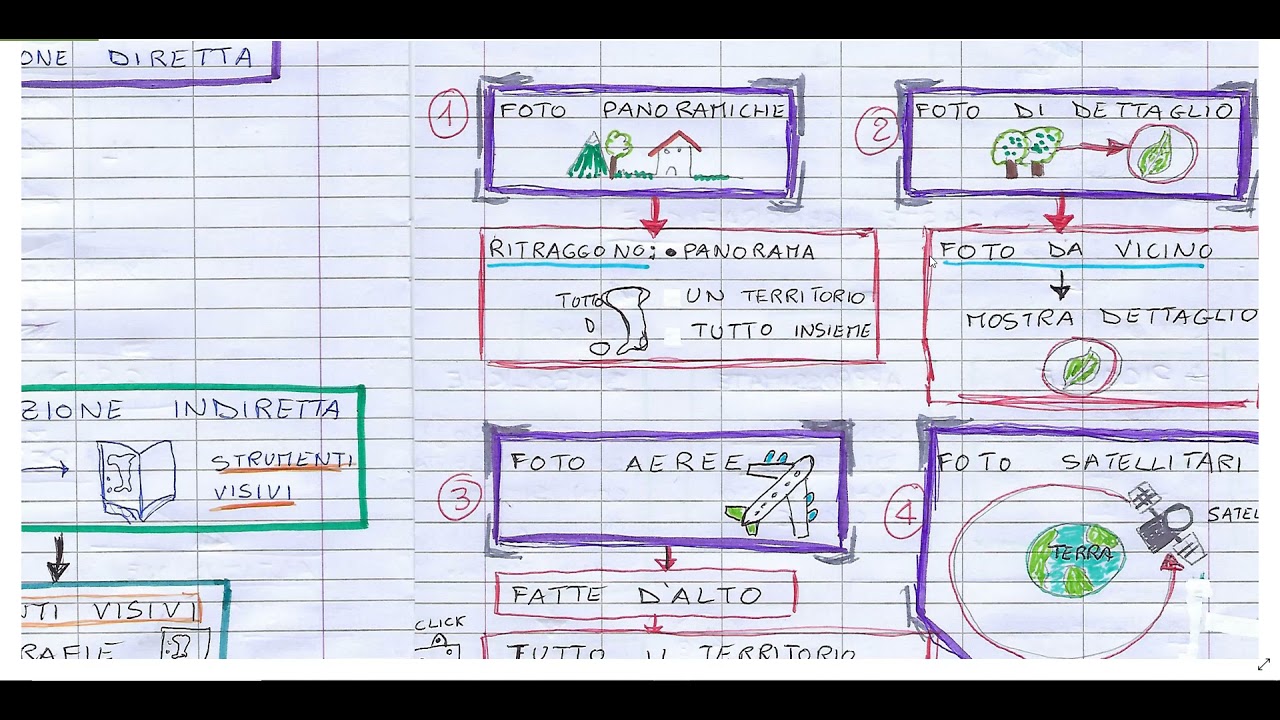 ONE DIRETTA
ZIONE INDIRETTA
STRUMENTI
VISIVI
NTI VISIVI
RAFIE
1
FOTO PANORAMICHE
RITRAGGONO: • PANORAMA
TUTTO
UN TERRITORIO
TUTTO INSIEME
2
FOTO DI DETTAGLIO
FOTO DA VICINO
MOSTRA DETTAGLIO
3
FOTO AEREE
FATTE D'ALTO
CLICK
TUTTO IL TERRITORIO
4
FOTO SATELLITARI
SATEL
TERRA